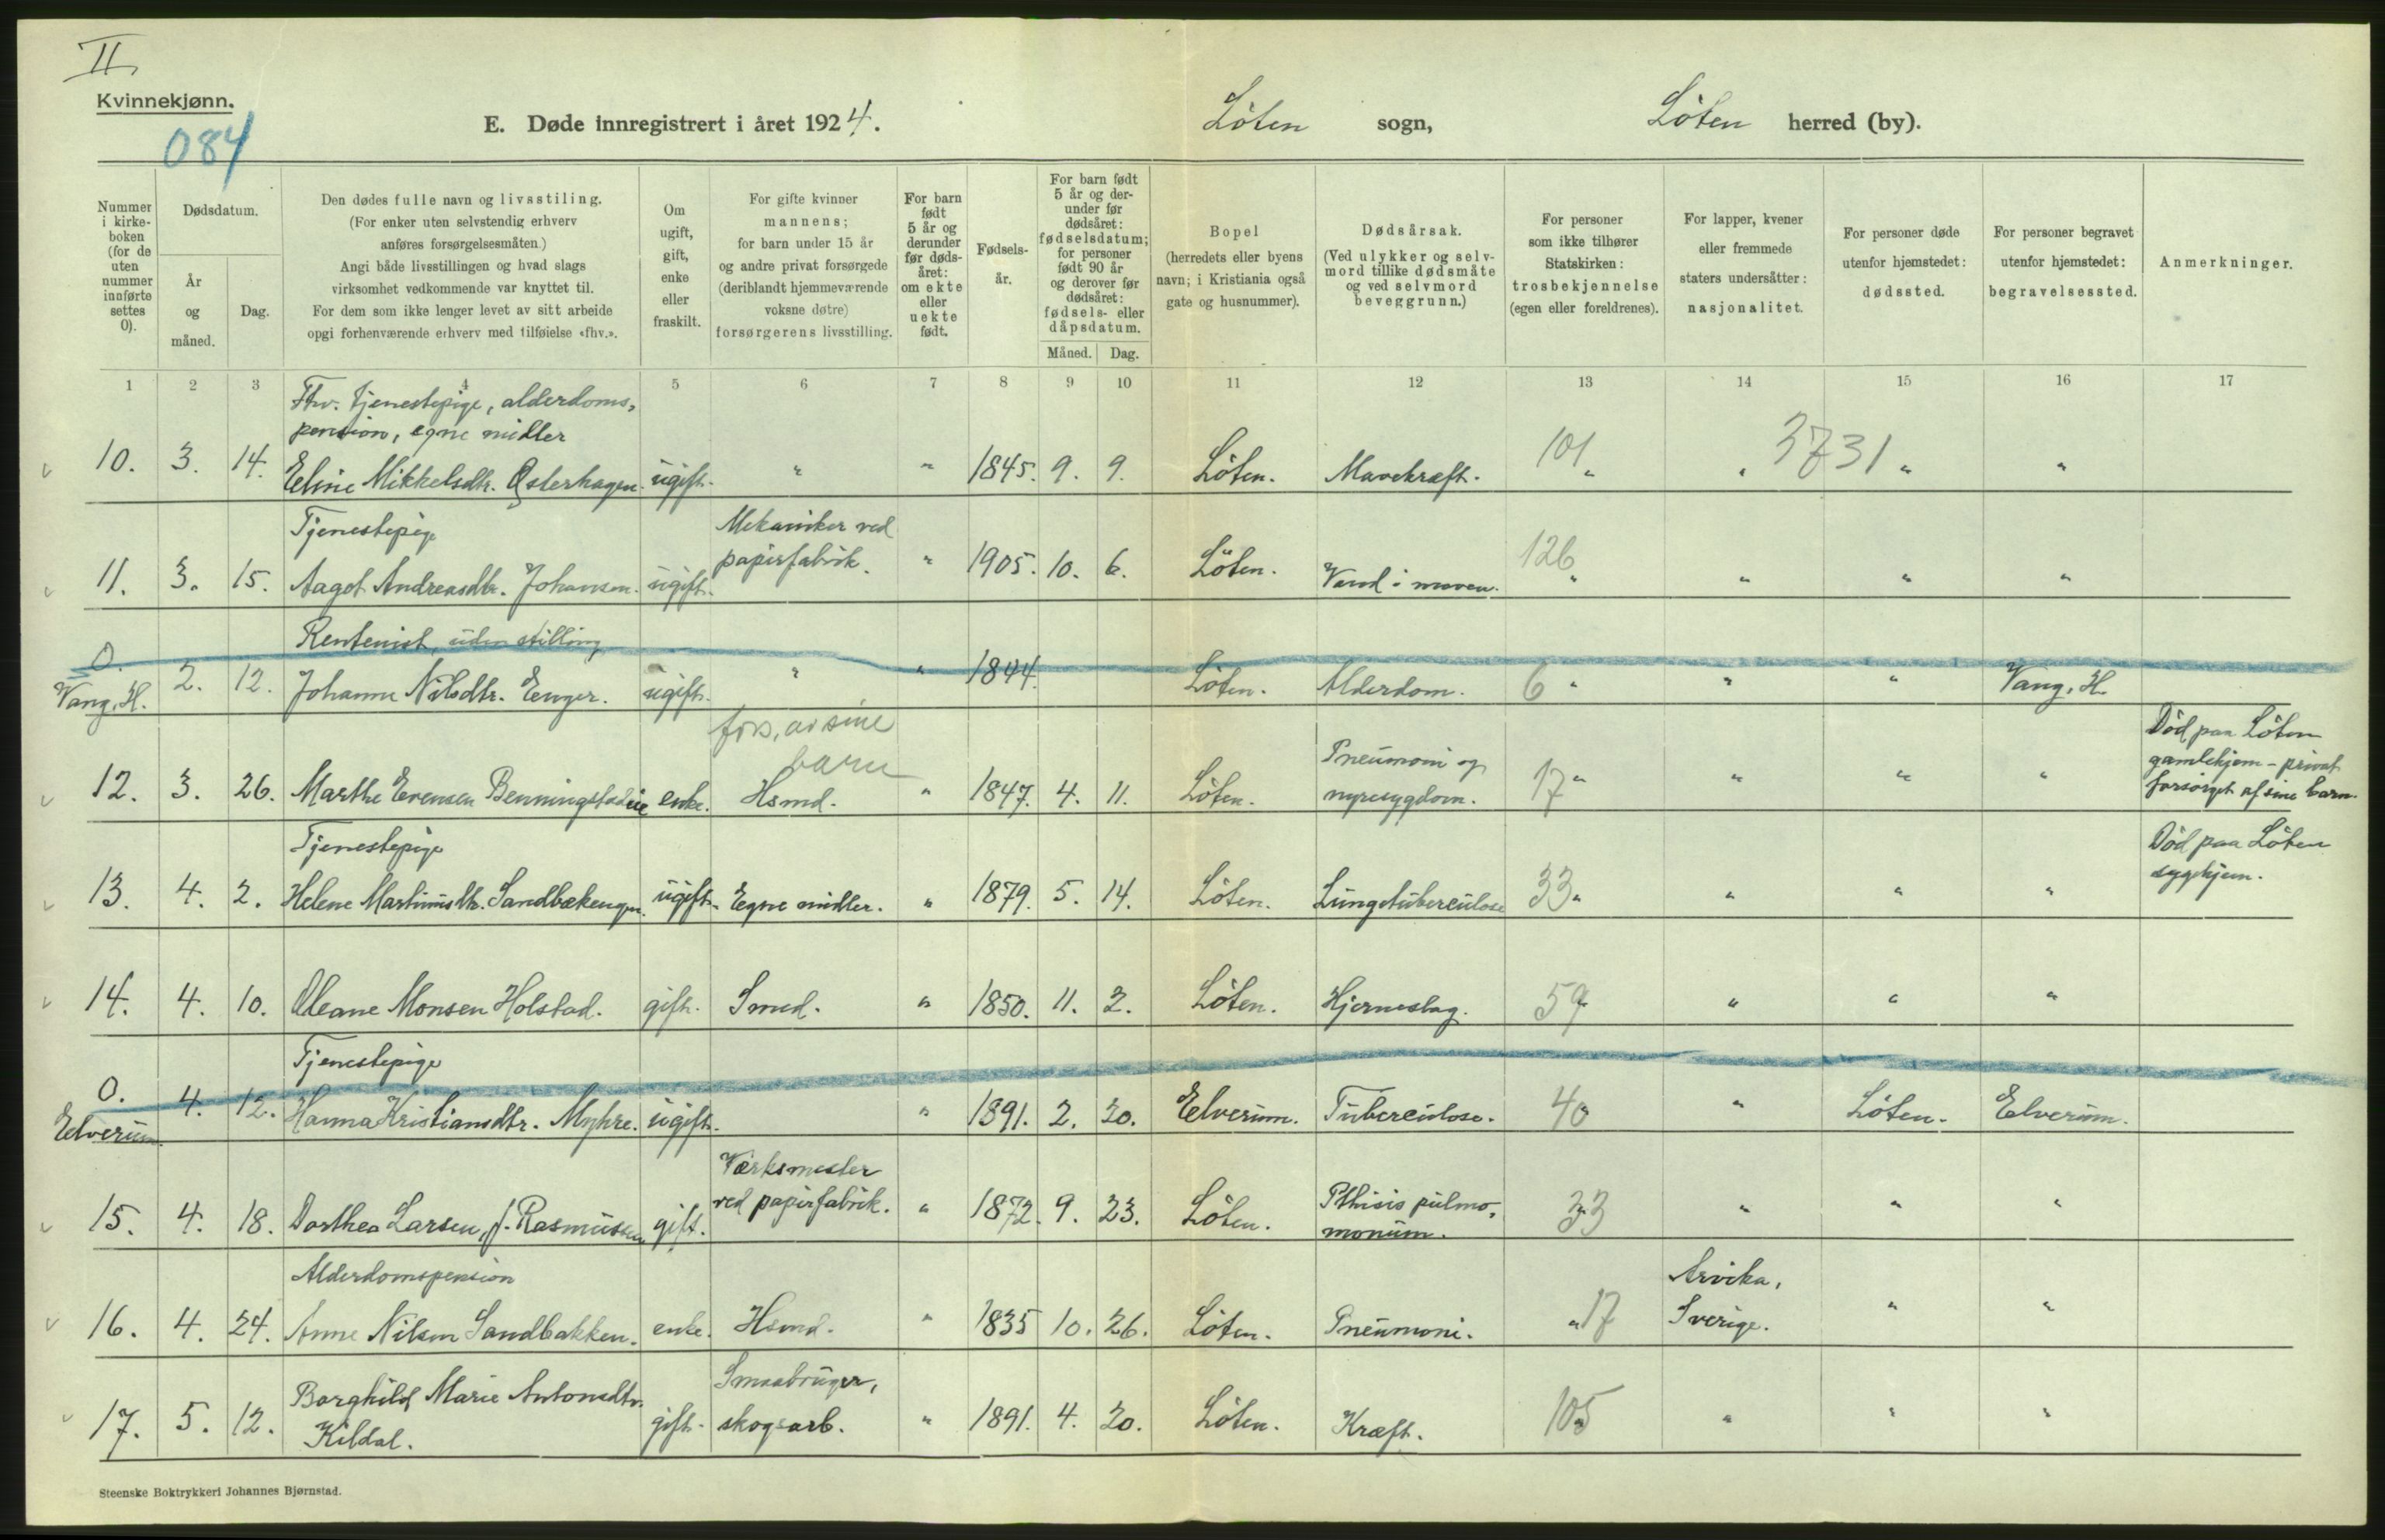 II
Kvinnekjønn.
084
E. Døde innregistrert i året 1924.
Löten sogn, Löten herred (by).
Nummer i kirke-boken (for de uten nummer innførte settes 0).
Dødsdatum.
År og måned.
Dag.
Den dødes fulle navn og livsstiling.
(For enker uten selvstendig erhverv
anføres forsørgelsesmåten.)
Angi både livsstillingen og hvad slags
virksomhet vedkommende var knyttet til.
For dem som ikke lenger levet av sitt arbeide
opgi forhenværende erhverv med tilføielse «fhv.».
Om ugift, gift, enke eller fraskilt.
For gifte kvinner
mannens;
for barn under 15 år
og andre privat forsørgede
(deriblandt hjemmeværende
voksne døtre)
forsørgerens livsstilling.
For barn født 5 år og derunder før døds-året: om ekte eller uekte født.
Fødsels-år.
For barn født 5 år og der-under før dødsåret: fødselsdatum; for personer født 90 år og derover før dødsåret: fødsels- eller dåpsdatum.
Måned. Dag.
Bopel
(herredets eller byens
navn; i Kristiania også
gate og husnummer).
Dødsårsak.
(Ved ulykker og selv-
mord tillike dødsmåte
og ved selvmord
beveggrunn.)
For personer
som ikke tilhører
Statskirken:
trosbekjennelse
(egen eller foreldrenes).
For lapper, kvener
eller fremmede
staters undersåtter:
nasjonalitet.
For personer døde
utenfor hjemstedet:
dødssted.
For personer begravet
utenfor hjemstedet:
begravelsessted.
Anmerkninger.
1 2 3 4 5 6 7 8 9 10 11 12 13 14 15 16 17
Fhv. tjenestepige, alderdoms-
pension, egne midler
10. 3. 14. Eline Mikkelsdtr. Østerhagen. ugift. " " 1845. 9. 9. Löten. Mavekræft. 101 " " 3731 " "
Tjenestepige Mekaniker ved
papirfabrik.
11. 3. 15. Aagot Andreasdtr. Johansen. ugift. " 1905. 10. 6. Löten. Vand i maven. 126 " " " "
Rentenist, uden stilling
0.
Vang, H. 2. 12. Johanne Nilsdtr. Enger. ugift. " " 1844. Löten. Alderdom. 6 " " " Vang, H.
fors. av sine
barn
12. 3. 26. Marthe Evensen Benningstadeie enke. Hsmd. " 1847. 4. 11. Löten. Pneumoni og
nyresygdom. 17 " " " "
Död paa Löten
gamlehjem - privat
forsörget af sine barn.
Tjenestepige
13. 4. 2. Helene Martinusdtr. Sandbækengen. ugift. Egne midler. " 1879. 5. 14. Löten. Lungetuberculose 33 " " " "
Död paa Löten
sygehjem.
14. 4. 10. Oleane Monsen Holstad. gift. Smed. " 1850. 11. 2. Löten. Hjerneslag. 59 " " "
Tjenestepige
0.
Elverum. 4. 12. Hanna Kristiansdtr. Myhre. ugift. " 1891. 2. 20. Elverum. Tuberculose. 40 " Löten. Elverum.
Værksmester
ved papirfabrik.
15. 4. 18. Dorthea Larsen, f. Rasmussen gift. " 1872. 9. 23. Löten. Pthisis pulmo-
monum. 33 " " "
Alderdomspension
16. 4. 24. Anne Nilsen Sandbakken. enke. Hsmd. " 1835 10. 26. Löten. Pneumoni. " 17 Arvika,
Sverige. " "
17. 5. 12. Borghild Marie Antonsdtr.
Kildal. gift. Smaabruger,
skogsarb. " 1891. 4. 20. Löten. Kræft. 105 " " "
Steenske Boktrykkeri Johannes Bjørnstad.